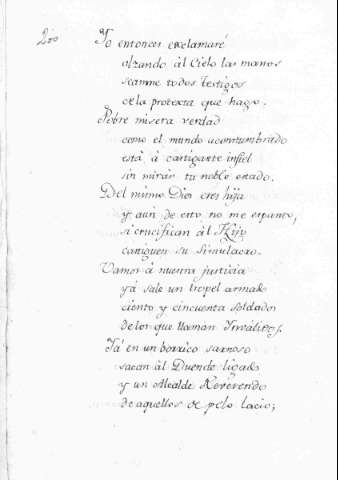 200
Yo entonces exclamaré
alzando àl Cielo las manos
seanme todos testigos
de la protexta que hago.
Pobre misera verdad
como el mundo acostumbrado
está à castigarte infiel
sin miràr tu noble estado.
Del mismo Dios eres hija
y aún de esto no me espanto,
si crucifican àl Hijo
castiguen su simulacro.
Vamos à nuestra justicia
yà sale un tropel armado
ciento y cincuenta soldados
de los que llaman Invalidos.
Yá en un borrico sarnoso
sacan àl Duende ligado
y un Alcalde Reverendo
de aquellos de pelo lacio;